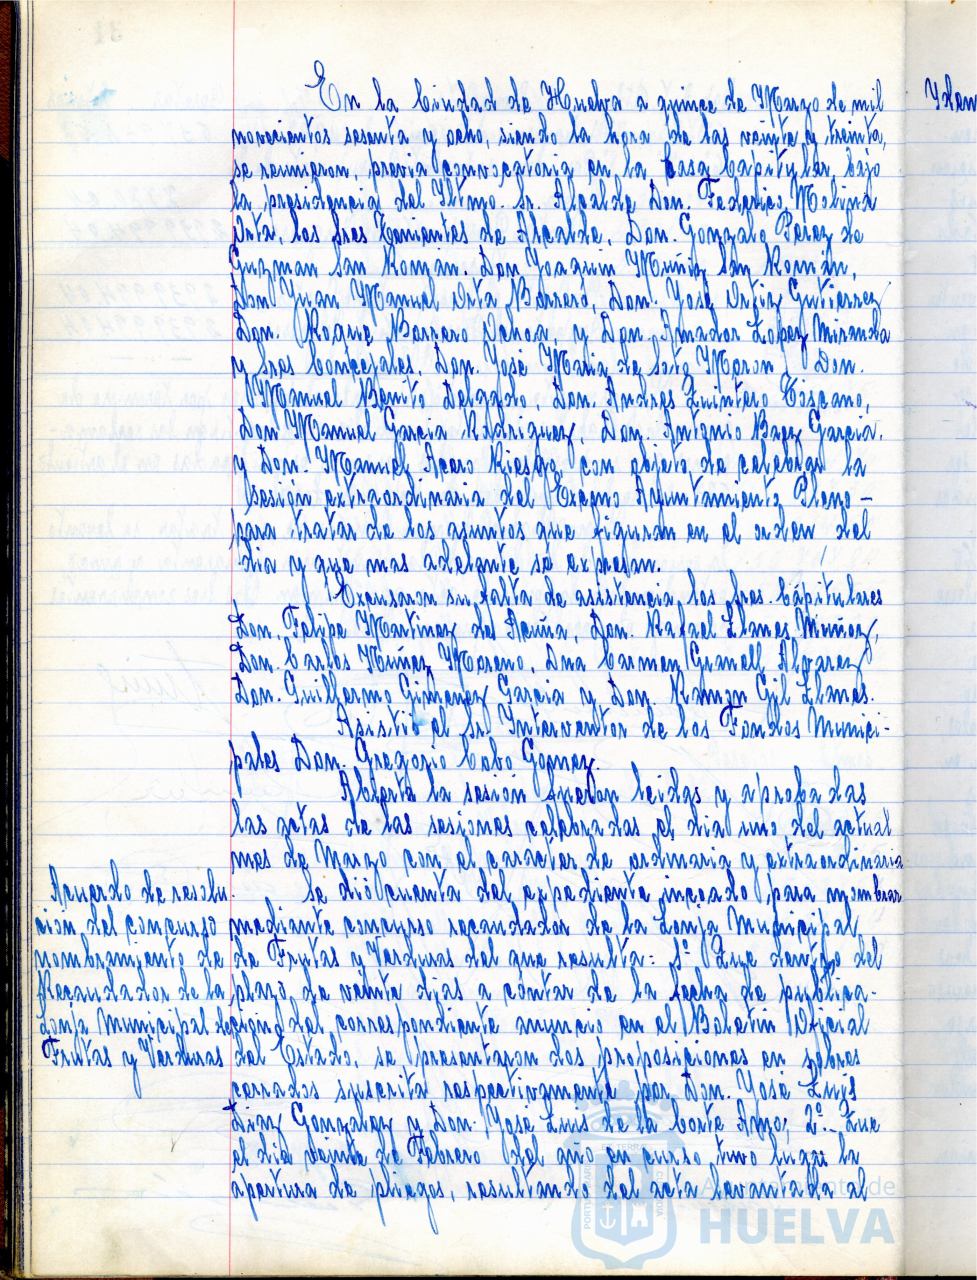 En la Ciudad de Huelva a quince de Marzo de mil
novecientos sesenta y ocho, siendo la hora de las veinte y treinta,
se reunieron, previa convocatoria en la Casa Capitular bajo
la presidencia del Iltmo. Sr. Alcalde Don. Federico Molina
Orta, los Sres Tenientes de Alcalde, Don. Gonzalo Perez de
Guzman San Román. Don Joaquin Muñiz San Román,
Don Juan Manuel Orta Barrera, Don. José Ortiz Gutierrez
Don. Roque Barrero Ochoa, y Don. Amador Lopez Miranda
y Sres Concejales, Don. José Maria de Soto Moron, Don.
Manuel Benito Delgado, Don. Andres Quintero Toscano,
Don Manuel Garcia Rodriguez, Don. Antonio Baez Garcia.
y Don. Manuel Acero Riesgo, con objeto de celebrar la
sesión extraordinaria del Excmo Ayuntamiento Pleno -
para tratar de los asuntos que figuran en el orden del
dia y que mas adelante se expresan.
Excusaron su falta de asistencia los Sres. Capitulares
Don. Felipe Martinez del Acuña, Don. Rafael Llanes Muñoz,
Don. Carlos Nuñez Moreno, Dña Carmen Granell Alvarez
Don. Guillermo Gimenez Garcia y Don Ramon Gil Llanes.
Asistió el Sr. Interventor de los Fondos Munici-
pales Don. Gregorio Cabo Gomez.
Abierta la sesión fueron leidas y aprobadas
las actas de las sesiones celebradas el dia uno del actual
mes de Marzo con el carácter de ordinaria y extraordinaria
Se dió cuenta del expediente incoado para nombrar
mediante concurso recaudador de la Lonja Municipal
de Frutas y Verduras del que resulta: 1º Que dentro del
plazo de veinte dias a contar de la fecha de publica-
ción del correspondiente anuncio en el Boletin Oficial
del Estado, se presentaron dos proposiciones en sobres
cerrados suscrita respectivamente por Don. José Luis
Diaz Gonzalez y Don. José Luis de la Corte Amo; 2º.- Que
el dia veinte de Febrero del año en curso tuvo lugar la
apertura de pliegos, resultando del acta levantada al
Acuerdo de resolu
ción del concurso
nombramiento de
Recaudador de la
Lonja Municipal de
Frutas y Verduras
Idem
Ayuntamiento de
HUELVA